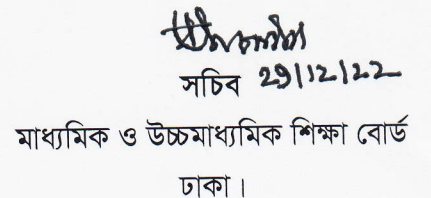 সচিব 29/12/22
মাধ্যমিক ও উচ্চমাধ্যমিক শিক্ষা বোর্ড
ঢাকা।